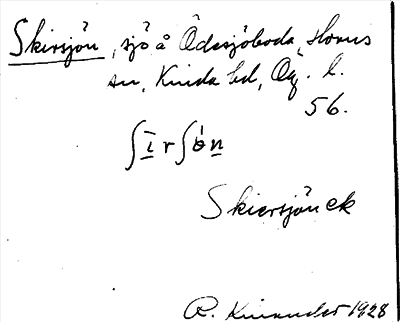 Skirsjön, sjö å Ödesjöboda, Horns
sn, Kinda hd, Ög. l.
56.
ʃīrʃòn
Skiersjön ek
R. Kinander 1928